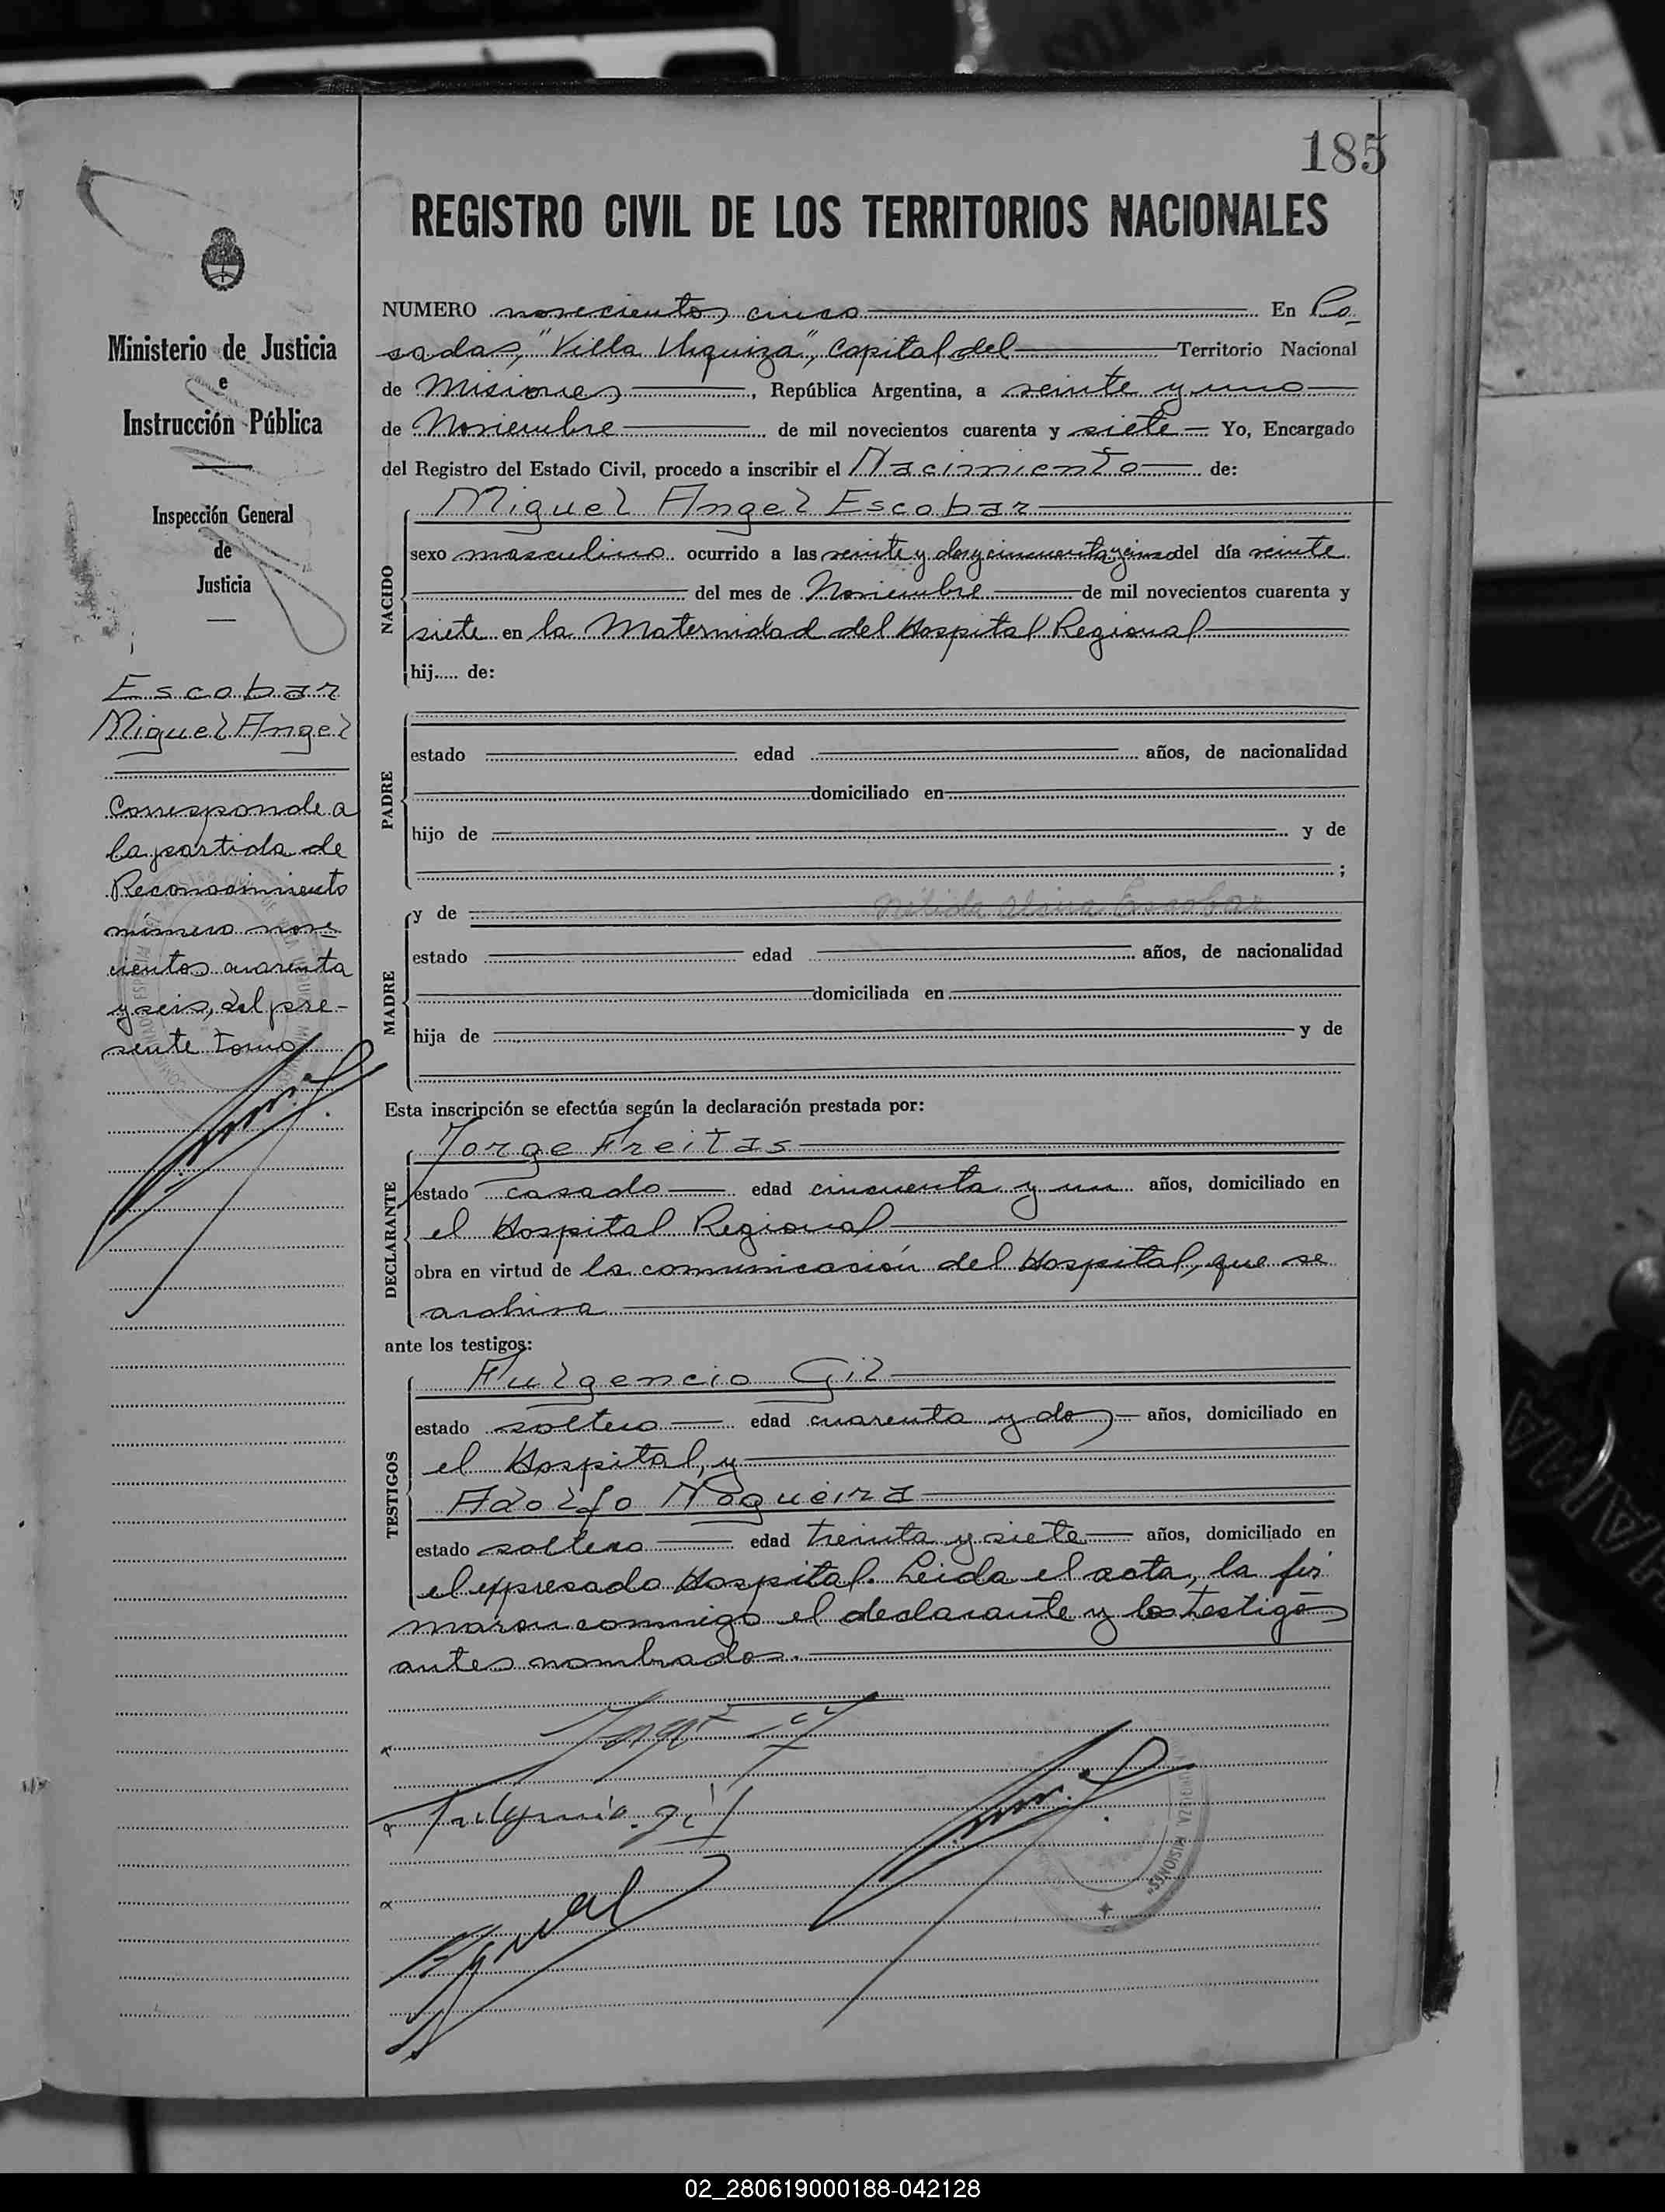 185
REGISTRO CIVIL DE LOS TERRITORIOS NACIONALES
Ministerio de Justicia
e
Instrucción Pública
Inspección General
de
Justicia
Escobar
Miguel Angel
Corresponde a
la partida de
Reconocimiento
número nove
cientos cuarenta
y seis, del pre-
sente tomo
NUMERO novecientos cinco En Po-
sadas, "Villa Urquiza", Capital del Territorio Nacional
de Misiones, República Argentina, a veinte y uno
de Noviembre de mil novecientos cuarenta y siete Yo, Encargado
del Registro del Estado Civil, procedo a inscribir el Nacimiento de:
NACIDO
Miguel Angel Escobar
sexo masculino ocurrido a las veinte y dos y cincuenta y cinco del día veinte
del mes de Noviembre de mil novecientos cuarenta y
siete en la Maternidad del Hospital Regional
hij..... de:
PADRE
estado edad años, de nacionalidad
domiciliado en
hijo de y de
;
MADRE
y de Escobar
estado edad años, de nacionalidad
domiciliada en
hija de y de
Esta inscripción se efectúa según la declaración prestada por:
DECLARANTE
Jorge Freitas
estado casado edad cincuenta y un años, domiciliado en
el Hospital Regional
obra en virtud de la comunicación del Hospital, que se
archiva
ante los testigos:
TESTIGOS
Fulgencio Gil
estado soltero edad cuarenta y dos años, domiciliado en
el Hospital, y
Adolfo Nogueira
estado soltero edad treinta y siete años, domiciliado en
el expresado Hospital. Leida el acta, la fir
maron conmigo el declarante y los testigos
antes nombrados.
Fulgencio Gil
URQUIZA MISIONES
02_280619000188-042128